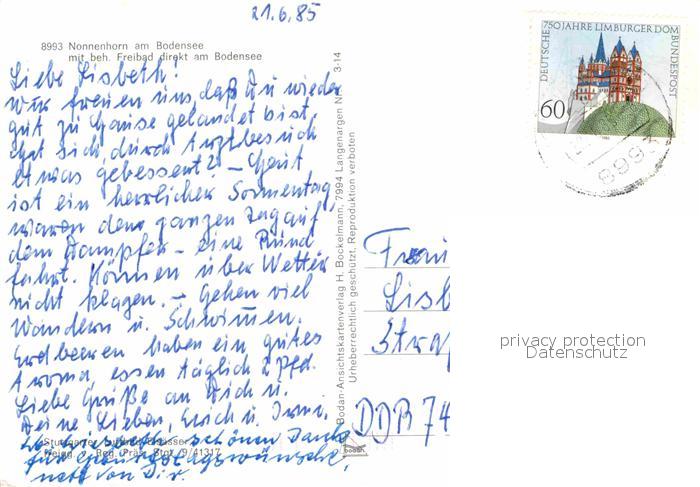 21.6.85
8993 Nonnenhorn am Bodensee
mit beh. Freibad direkt am Bodensee
Liebe Lisbeth!
Wir freuen uns, daß Du wieder
gut zu Hause gelandet bist,
hat sich durch Arztbesuch
etwas gebessert? – Heut
ist ein herrlicher Sonnentag,
waren den ganzen Tag auf
dem Dampfer – eine Rund
fahrt. Können über Wetter
nicht klagen. – Gehen viel
Wandern u. Schwimmen.
Erdbeeren haben ein gutes
Aroma, essen täglich 2 Pfd.
Liebe Grüße an Dich u.
Deine Lieben, Erich u. Irmi.
schönen Dank
für Geburtstagswünsche,
nett von Dir.
Freigg. v. Reg. Präs. Stgt. 9/41317
Bodan-Ansichtskartenverlag H. Bockelmann, 7994 Langenargen 3-14
Urheberrechtlich geschützt, Reproduktion verboten
bodan
DEUTSCHE BUNDESPOST
750 JAHRE LIMBURGER DOM
60
8993
Frau
Lisb
Straß
DDR 74
privacy protection
Datenschutz